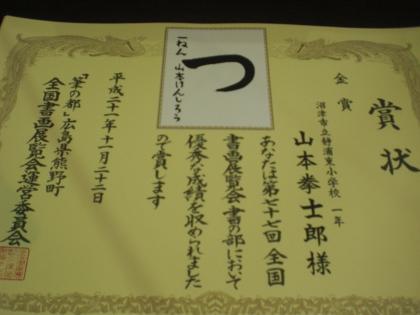 賞状
金賞
沼津市立静浦東小学校 一年
山本拳士郎様
あなたは第七十七回全国
書画展覧会書の部において
優秀な成績を収められました
ので賞します
平成二十一年十一月二十二日
「筆の都」広島県熊野町
全国書画展覧会運営委員会
つ
一ねん 山本けんしろう